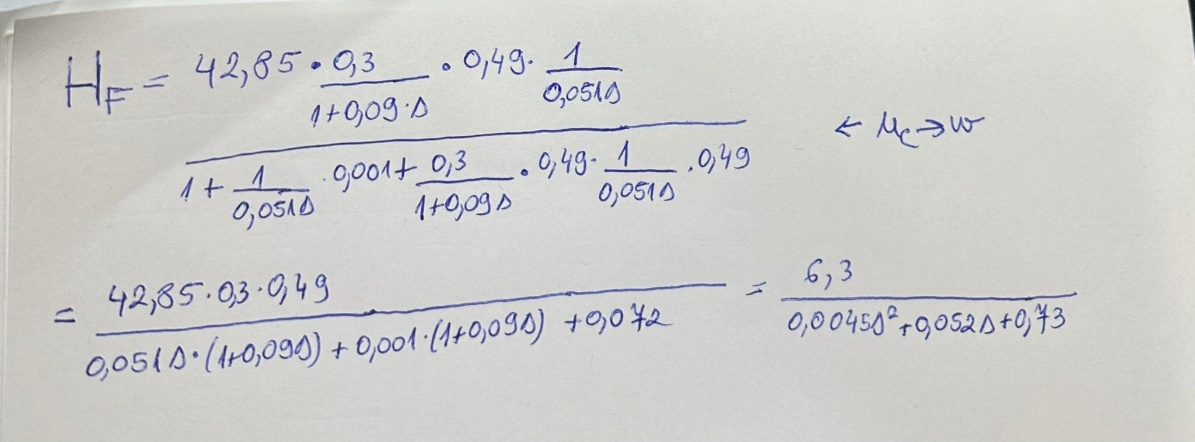 H_F = 42,85 · 0,3/(1+0,09·s) · 0,49 · 1/(0,051s)
1 + 1/(0,051s) · 0,001 + 0,3/(1+0,09s) · 0,49 · 1/(0,051s) · 0,49
← u_c → w
= 42,85·0,3·0,49/(0,051s·(1+0,09s) + 0,001·(1+0,09s) + 0,072) = 6,3/(0,0045s²+0,052s+0,73)